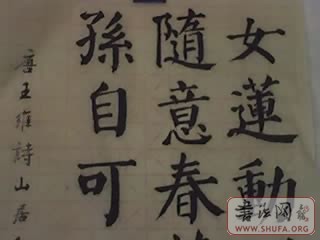 女蓮動
隨意春
孫自可
唐王維詩山居
書法网
WWW.SHUFA.ORG